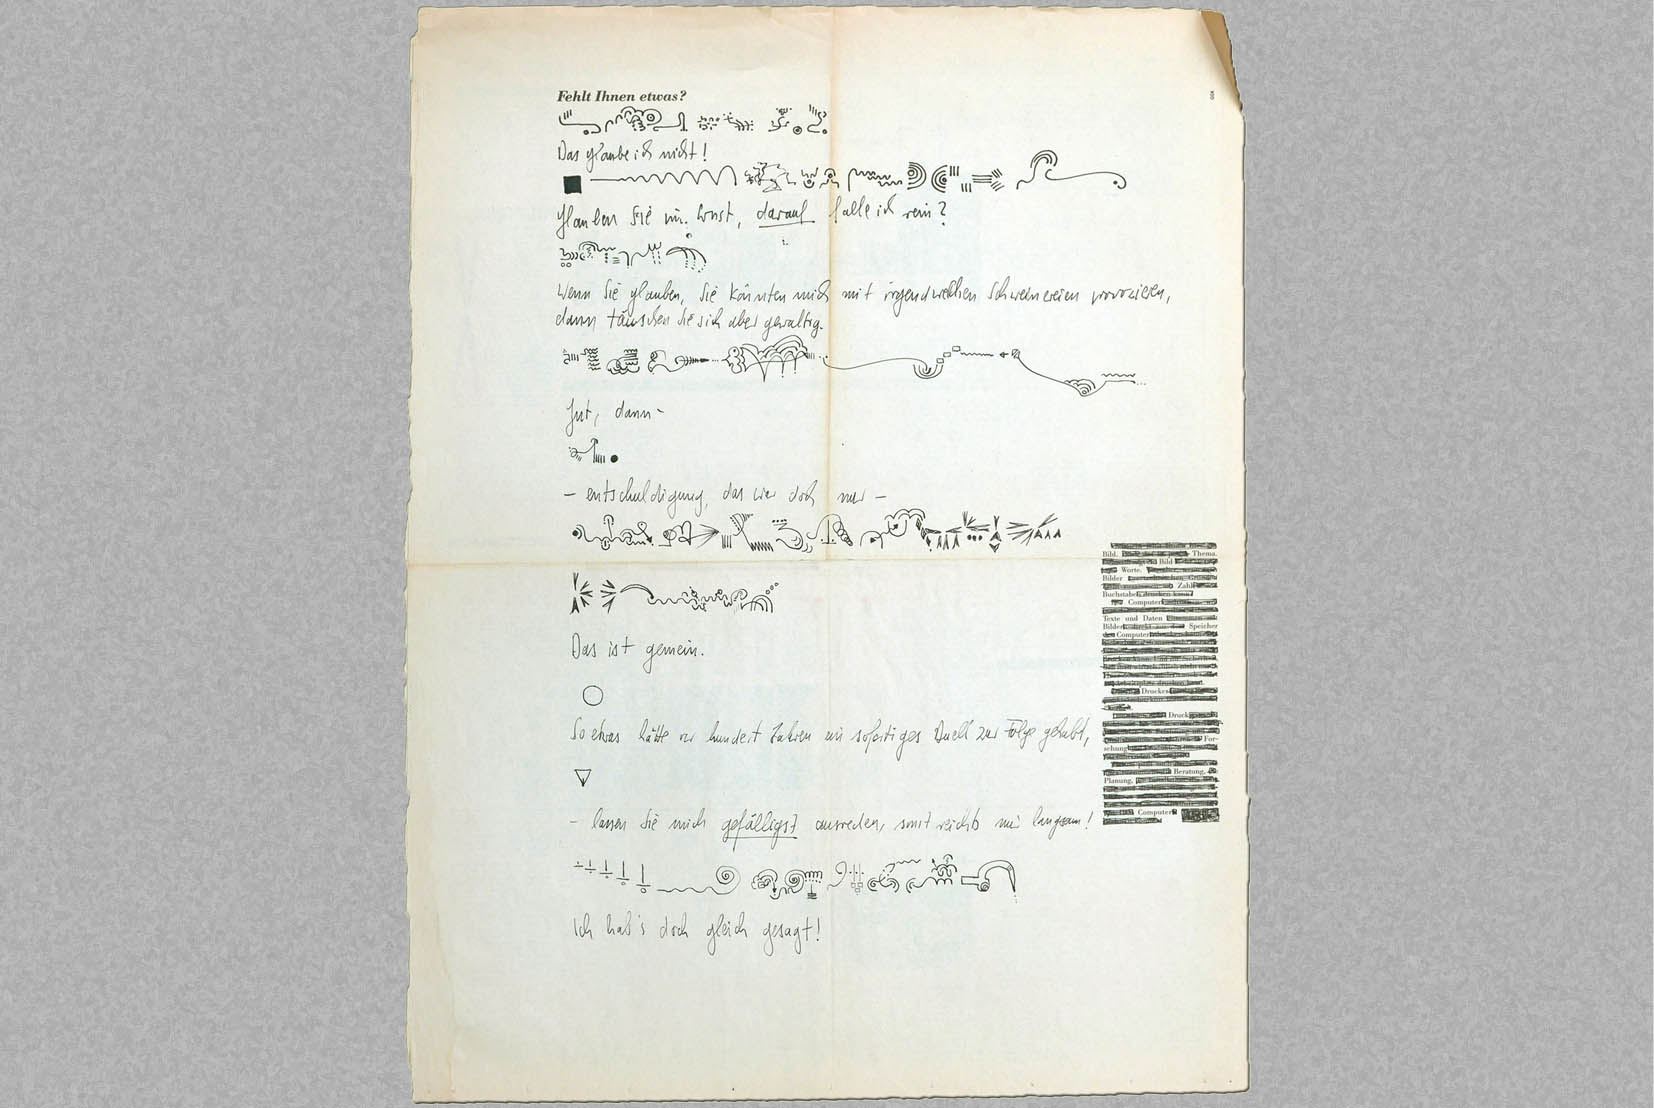 Fehlt Ihnen etwas?
Das glaube ich nicht!
Glauben Sie im Ernst, darauf falle ich rein?
Wenn Sie glauben, Sie könnten mich mit irgendwelchen Schweinereien provozieren,
dann täuschen Sie sich aber gewaltig.
Gut, dann -
- entschuldigung, das war doch nur -
Das ist gemein.
So etwas hätte vor hundert Jahren ein sofortiges Duell zur Folge gehabt,
- lassen Sie mich gefälligst ausreden, sonst reichts mir langsam!
Ich hab's doch gleich gesagt!
Bild. Thema.
Bild
Worte.
Bilder
Zahl
Buchstabe
Computer
Texte und Daten
Bilder Speicher
Computer
Drucker
Druck
For-
schung
Beratung,
Planung,
Computer